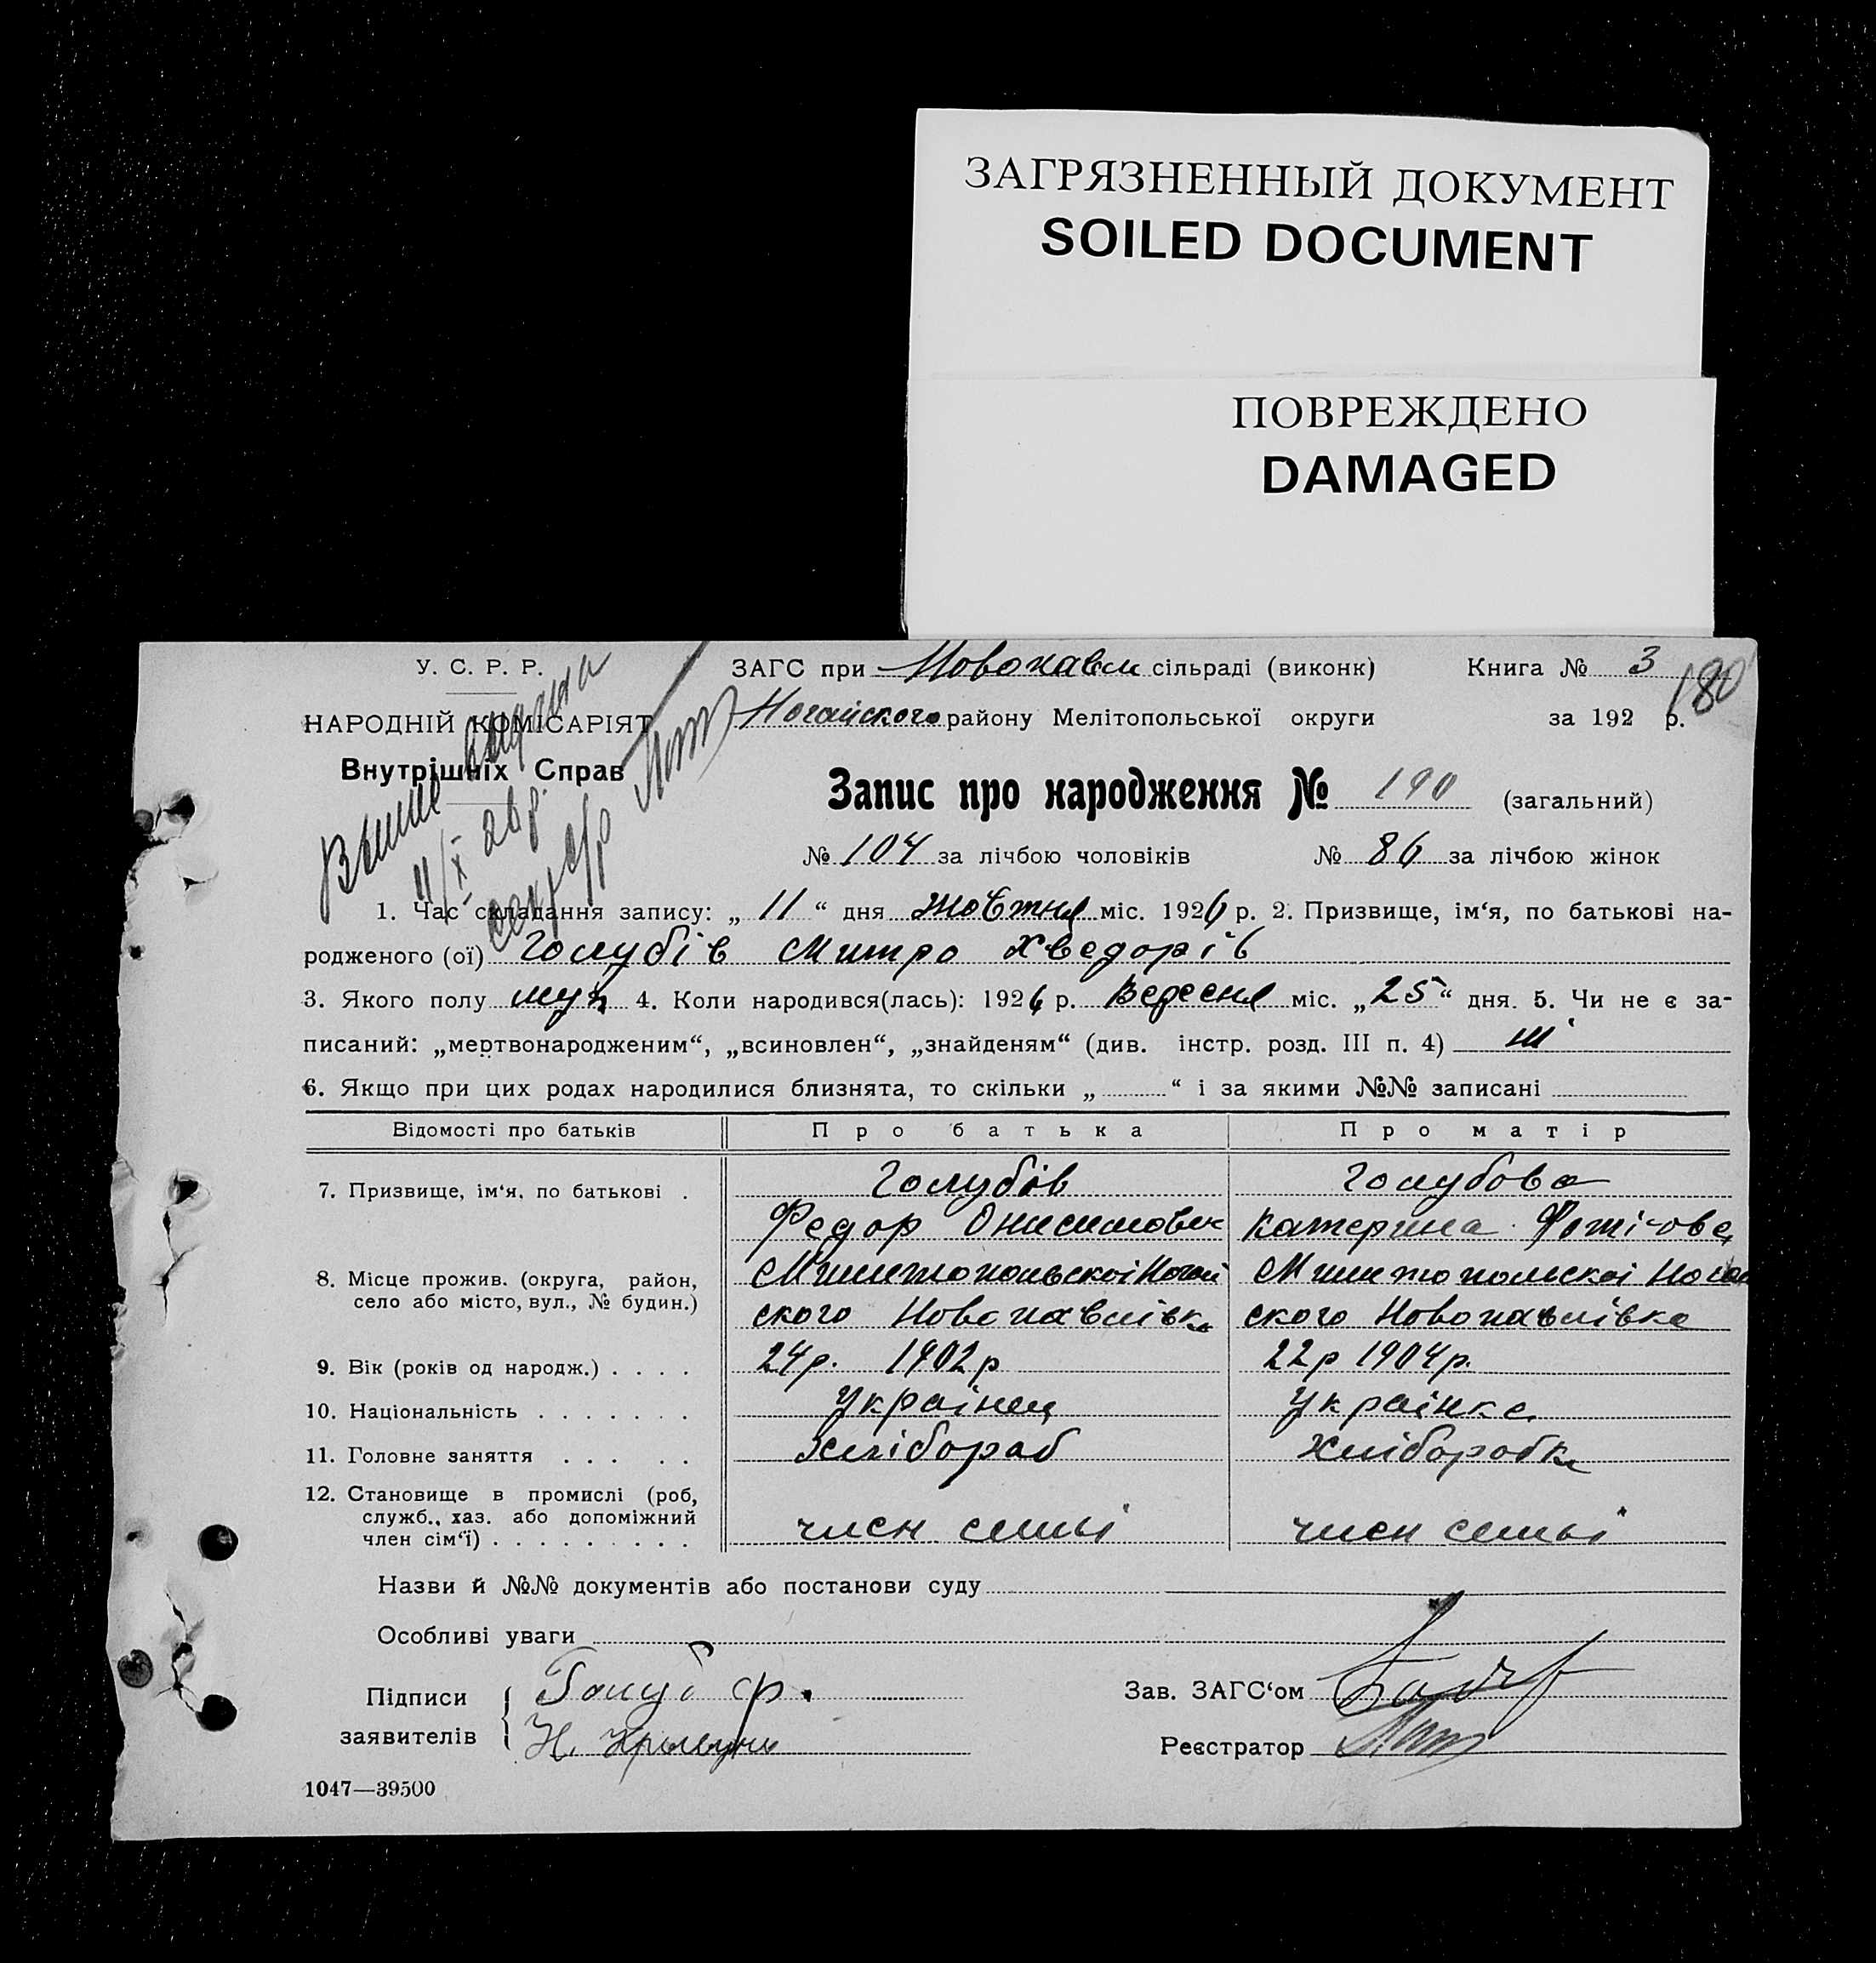 ЗАГРЯЗНЕННЫЙ ДОКУМЕНТ
SOILED DOCUMENT
ПОВРЕЖДЕНО
DAMAGED
У. С. Р. Р.
НАРОДНІЙ КОМІСАРІЯТ
Внутрішніх Справ
ЗАГС при Новопавли сільраді (виконк) Книга № 3
180
Ногайского району Мелітопольської округи за 192 р.
Запис про народження № 190 (загальний)
№ 104 за лічбою чоловіків № 86 за лічбою жінок
1. Час складання запису: „ 11 “ дня жовтня міс. 1926 р. 2. Призвище, ім‘я, по батькові на-
родженого (ої) Голубів Митро Хведорів
3. Якого полу муж 4. Коли народився(лась): 1926 р. Вересня міс. „ 25 “ дня. 5. Чи не є за-
писаний: „мертвонародженим“, „всиновлен“, „знайденям“ (див. інстр. розд. III п. 4) ні
6. Якщо при цих родах народилися близнята, то скільки „ “ і за якими №№ записані
Відомості про батьків Про батька Про матір
7. Призвище, ім‘я, по батькові . Голубів Голубова
Федор Онисимович Катерина
8. Місце прожив. (округа, район, село або місто, вул., № будин.)
ского Новопавлівка ского Новопавлівка
9. Вік (років од народж.) . . . . 24р. 1902р 22р 1904р.
10. Національність . . . . . . . Українец Українка
11. Головне заняття . . . . . Хлібороб Хліборобка
12. Становище в промислі (роб,
служб., хаз. або допоміжний
член сім‘ї) . . . . . . . . . член семьі член семьі
Назви й №№ документів або постанови суду
Особливі уваги
Підписи Голуб Ф. Зав. ЗАГС‘ом
заявителів Реєстратор
1047—39500